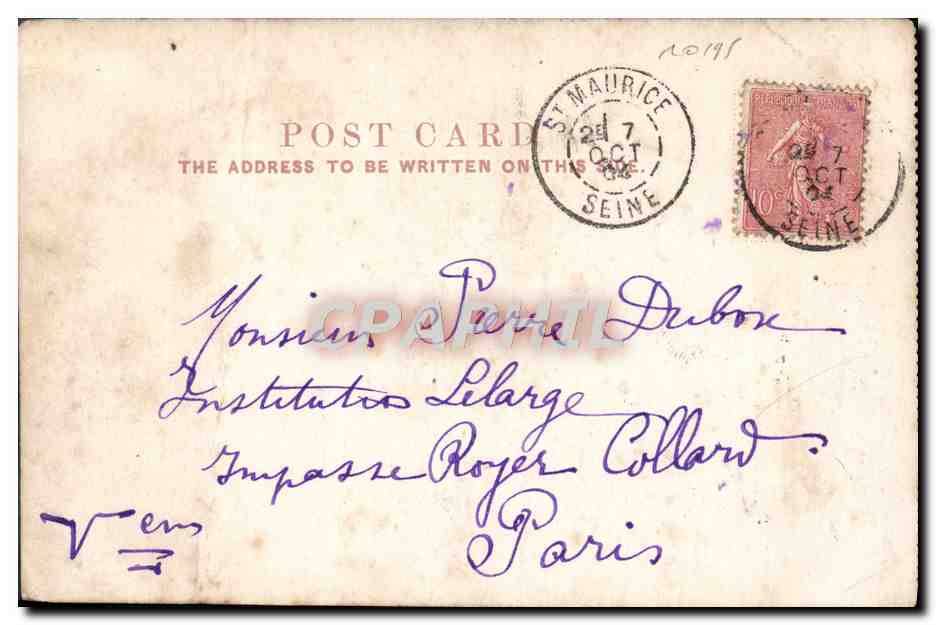 10195
POST CARD
THE ADDRESS TO BE WRITTEN ON THIS SIDE.
ST MAURICE
2E 7
OCT
04
SEINE
REPUBLIQUE FRANCAISE
10c
2E 7
OCT
04
SEINE
CPAPHIL
Monsieur Pierre Dubox
Institution Lelarge
Impasse Royer Collard
Paris
V ème